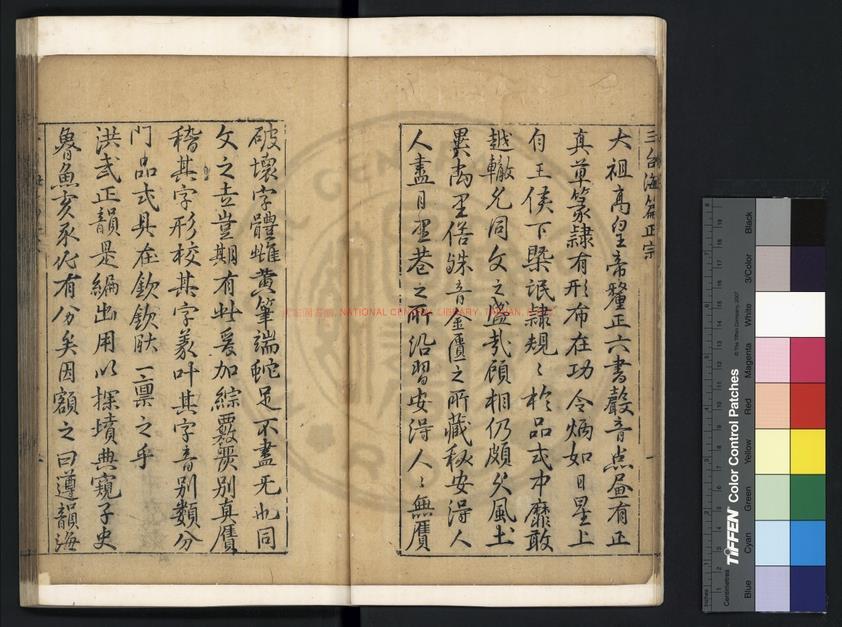 三台海篇正宗
大祖高皇帝釐正六書聲音点畫有正
真草篆隸有形布在功令炳如日星上
自王侯下槩氓隸規〻於品式中靡敢
越轍允同文之盛哉顧相仍頗久風土
異而里俗殊音金匱之所藏秘安得人
人盡目里巷之所沿習安得人〻無贋
破壞字體雌黄筆端蛇足不盡无也同
文之志豈期有此爰加綜覈裁别真贋
稽其字形校其字義叶其字音别類分
門品式具在欽欽肰一禀之乎
洪武正韻是編出用以探墳典窺子史
魯魚亥豕庶有分矣因額之曰遵韻海
NATIONAL CENTRAL LIBRARY, TAIWAN
TIFFEN Color Control Patches
© The Tiffen Company, 2007
Centimetres
Inches
Blue
Cyan
Green
Yellow
Red
Magenta
White
3/Color
Black